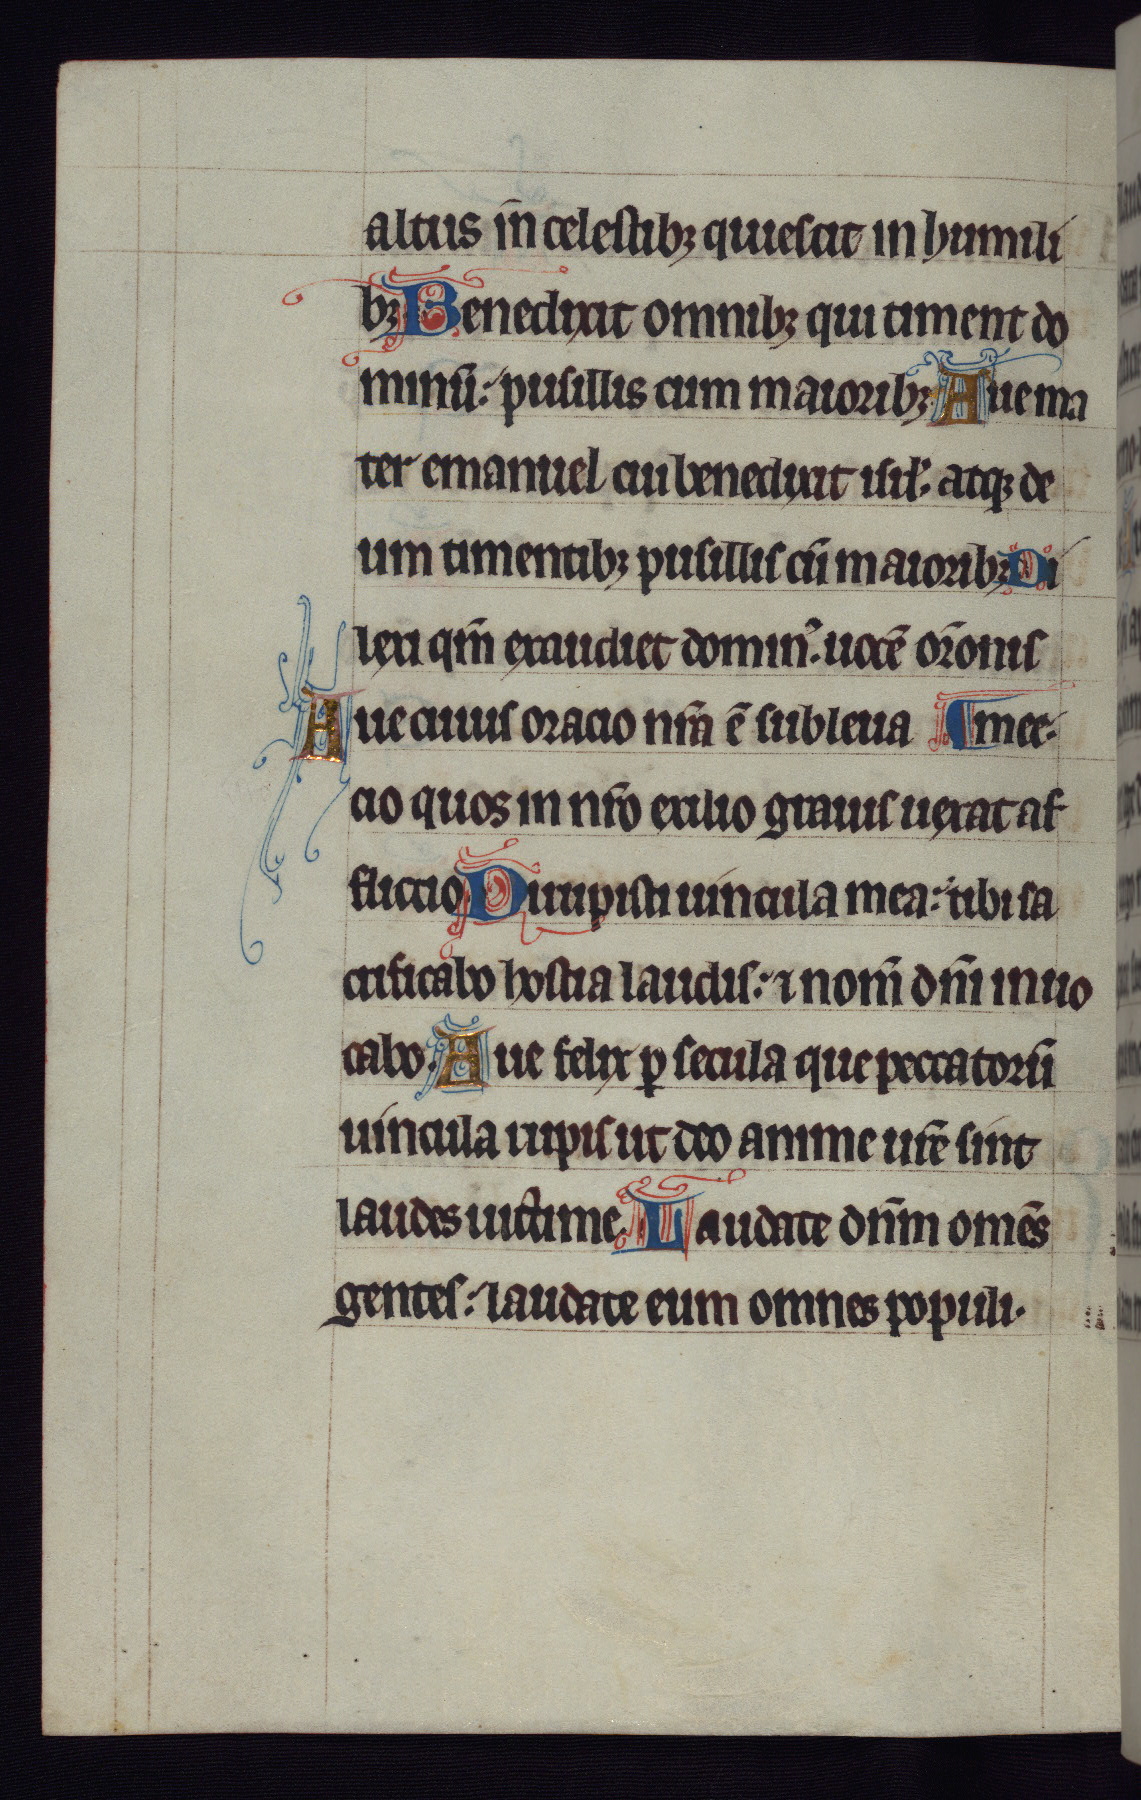 altus in celestibꝫ quiescit in humili
bꝫ Benedixit omnibꝫ qui timent do
minū: pusillis cum maioribꝫ Aue ma
ter emanuel cui benedixit isrl̄. atqꝫ de
um timentibꝫ pusillis cū maioribꝫ Di
lexi qm̄ exaudiet domin᾿. uocē or̄onis
Aue cuius oracio nr̄a ē subleua ¶ mee.
cio quos in nr̄o exilio grauis uexat af
flictio Dirupisti uincula mea: tibi sa
crificabo hostia laudis: ⁊ nom̄ dn̄i inuo
cabo. Aue felix ꝑ secula que peccatorū
uincula rupis ut deo anime ur̄e sint
laudes uictime. Laudate dn̄m om̄es
gentes: laudate eum omnes populi.